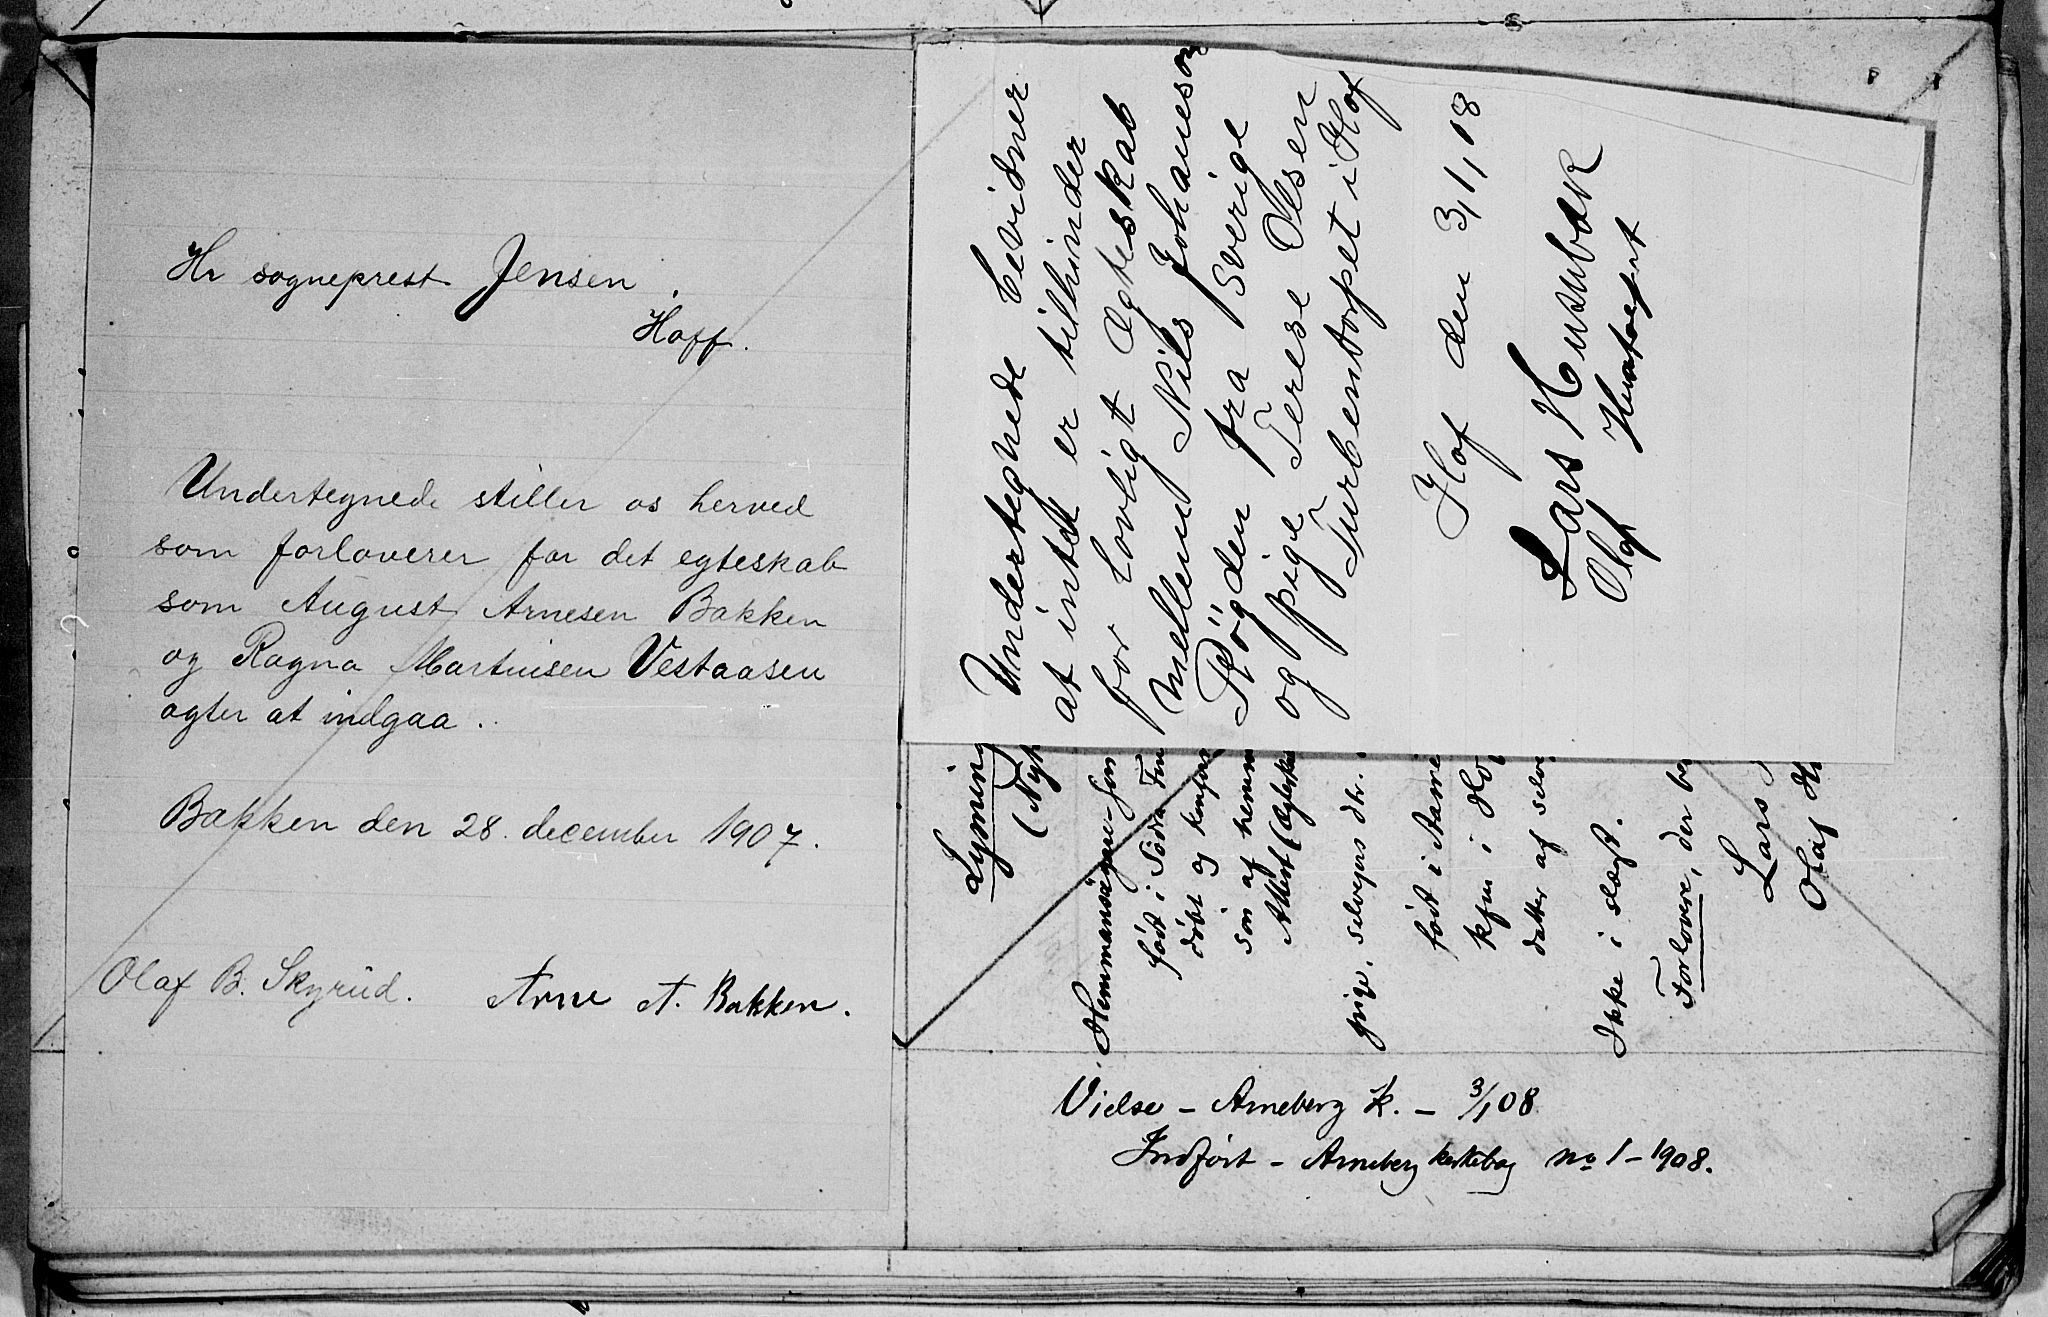 Hr sogneprest Jensen.
Hoff.
Undertegnede stiller os herved
som forloverer for det egteskab
som August Arnesen Bakken
og Ragna Martinisen Vestaasen
agter at indgaa.
Bakken den 28. december 1907.
Olaf B. Skyrud. Arne A. Bakken.
Undertegnede bevidner
at intet er tilhinder
for Lovligt Ægteskab
mellem Nils Johaneson
Rögden fra Sverige
og pige Terese Olsen
Turbentorpet i Hof
Hof den 3/1, 08
Lars Husubæk
Olaf
Lysning
(Nyt
Hemmansägare-søn
født i Södra Fin
døbt og konfir
søn af hemm
Attest (Ægteska
pige, selveiers dtr.
født i Aasne
kfm i Ho
datter af selv
Ikke i slægt.
Forlovere, der be
Lars
Olaf H
Vielse - Arneberg K. - 3/1 08.
Indført - Arneberg kirkebog No 1 - 1908.